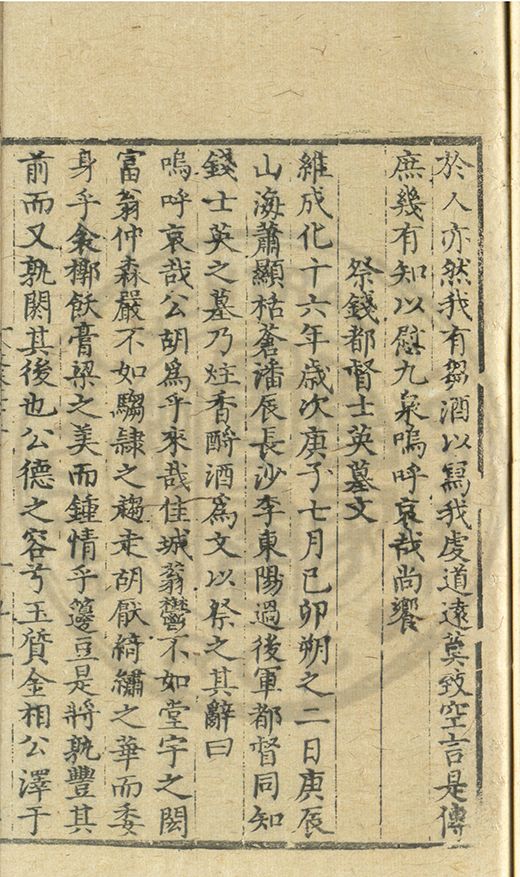 於人亦然我有芻酒以寫我虔道遠莫致空言是傳
庶幾有知以慰九泉嗚呼哀哉尚饗
祭錢都督士英墓文
維成化十六年歲次庚子七月己卯朔之二日庚辰
山海蕭顯栝蒼潘辰長沙李東陽過後軍都督同知
錢士英之墓乃炷香酹酒爲文以祭之其辭曰
嗚呼哀哉公胡爲乎來哉佳城蓊鬱不如堂宇之閎
富翁仲森嚴不如騶隷之趨走胡厭綺繡之華而委
身乎衾槨飫膏粱之美而鍾情乎籩豆是將孰豐其
前而又孰閼其後也公德之容兮玉質金相公澤于